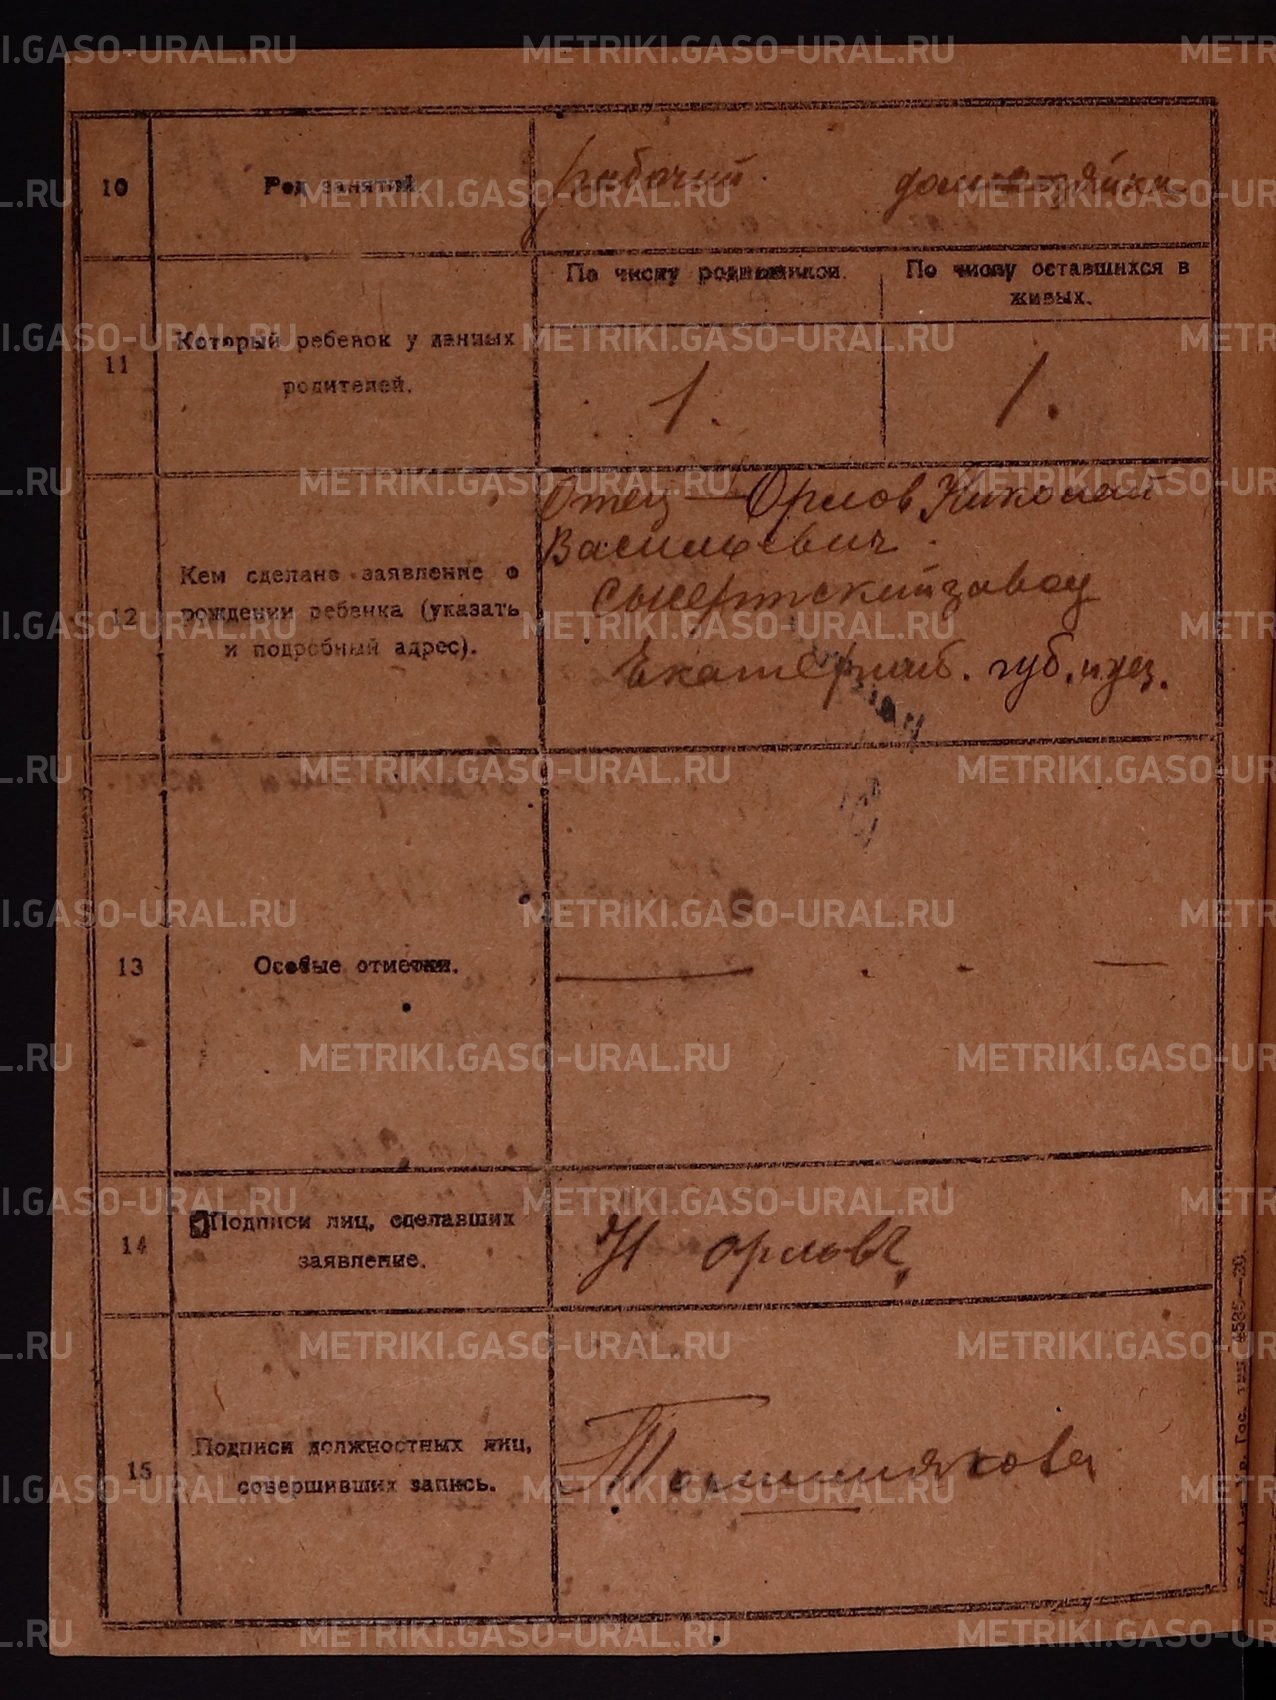 10
Род занятий.
рабочий.
домохозяйка.
11
Который ребенок у данных
родителей.
По числу родившихся.
По числу оставшихся в
живых.
1.
1.
12
Кем сделано заявление о
рождении ребенка (указать
и подробный адрес).
Отец — Орлов Николай
Васильевич.
Сысертский завод
Екатеринб. губ. и уез.
13
Особые отметки.
14
Подписи лиц, сделавших
заявление.
Н Орловъ
15
Подписи должностных лиц,
совершивших запись.
METRIKI.GASO-URAL.RU